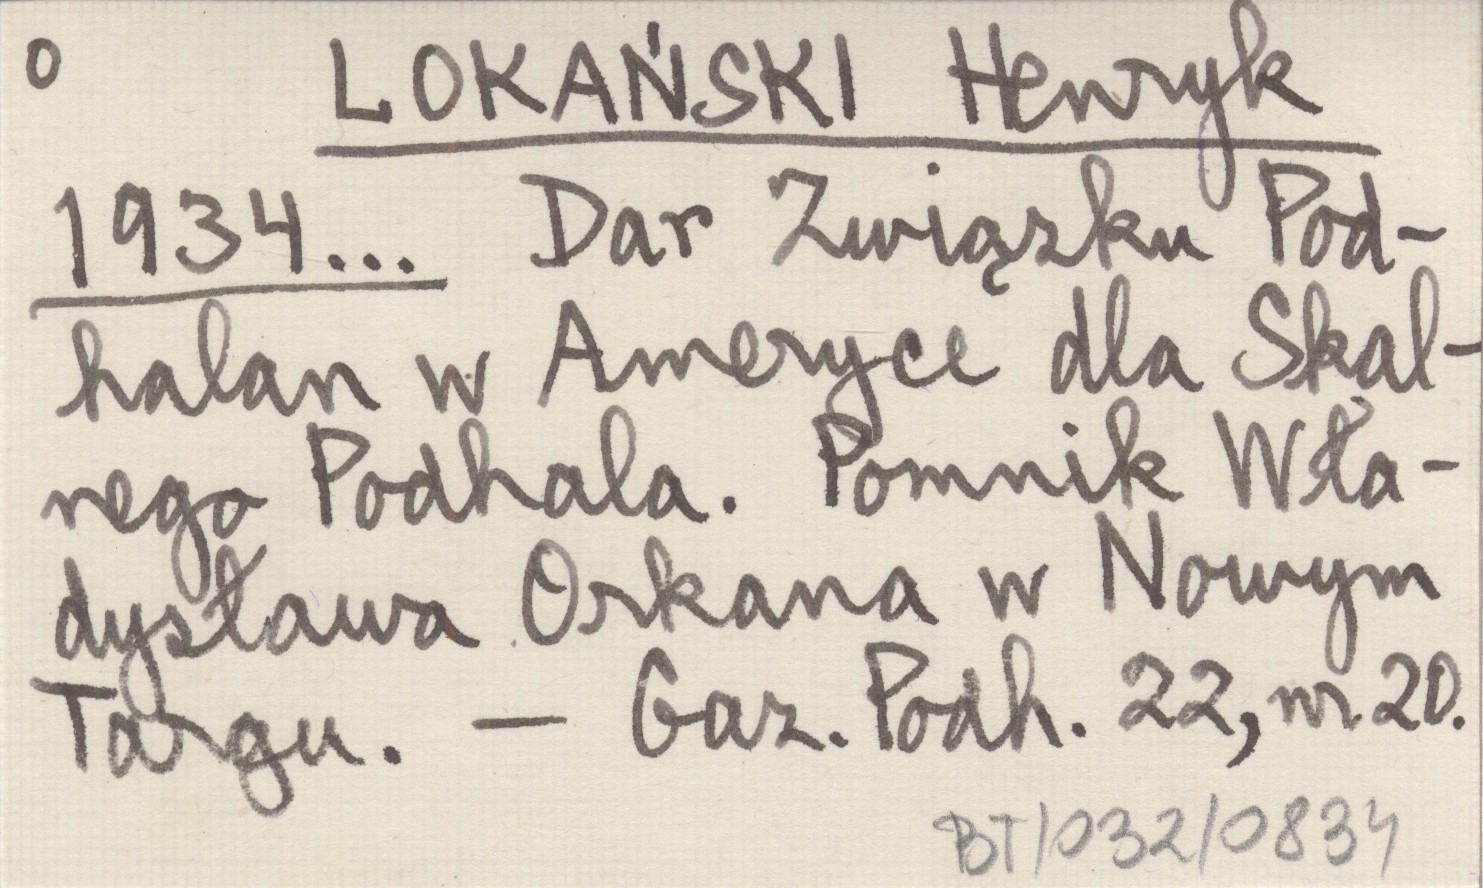 o LOKAŃSKI Henryk
1934... Dar Związku Pod-
halan w Ameryce dla Skal-
nego Podhala. Pomnik Wła-
dysława Orkana w Nowym
Targu. — Gaz. Podh. 22, nr 20.
BT/032/0834